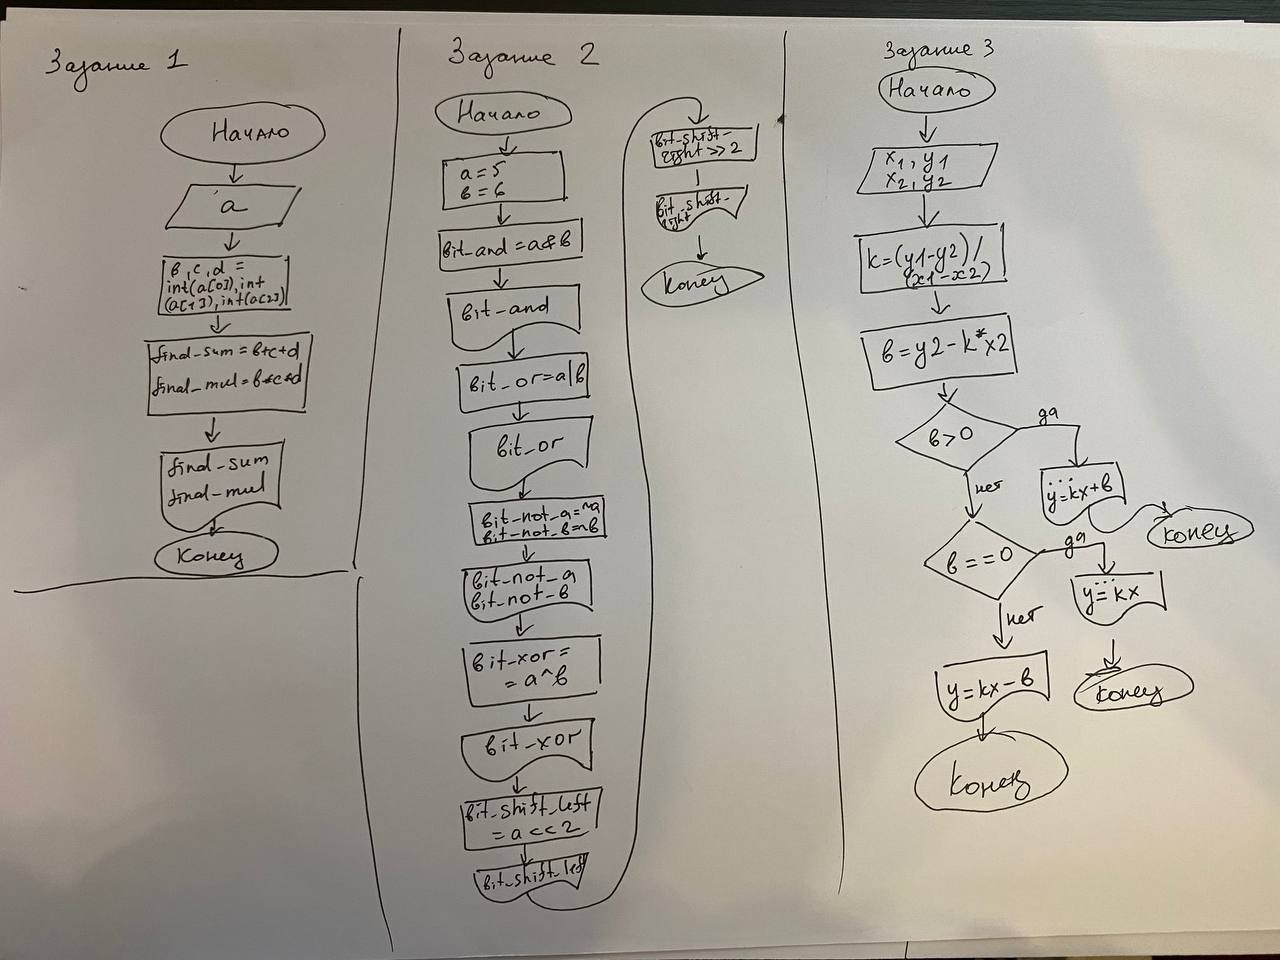 Задание 1
Начало
a
b, c, d =
int(a[0]), int
(a[1]), int(a[2])
final_sum = b+c+d
final_mul = b*c*d
final_sum
final_mul
Конец
Задание 2
Начало
a = 5
b = 6
bit_and = a&b
bit_and
bit_or = a|b
bit_or
bit_not_a = ~a
bit_not_b = ~b
bit_not_a
bit_not_b
bit_xor =
= a^b
bit_xor
bit_shift_left
= a << 2
bit_shift_left
bit_shift_
right >> 2
bit_shift_
right
Конец
Задание 3
Начало
x1, y1
x2, y2
k = (y1-y2) /
(x1-x2)
b = y2 - k*x2
b > 0
да
y = kx + b
Конец
нет
b == 0
да
y = kx
Конец
нет
y = kx - b
Конец